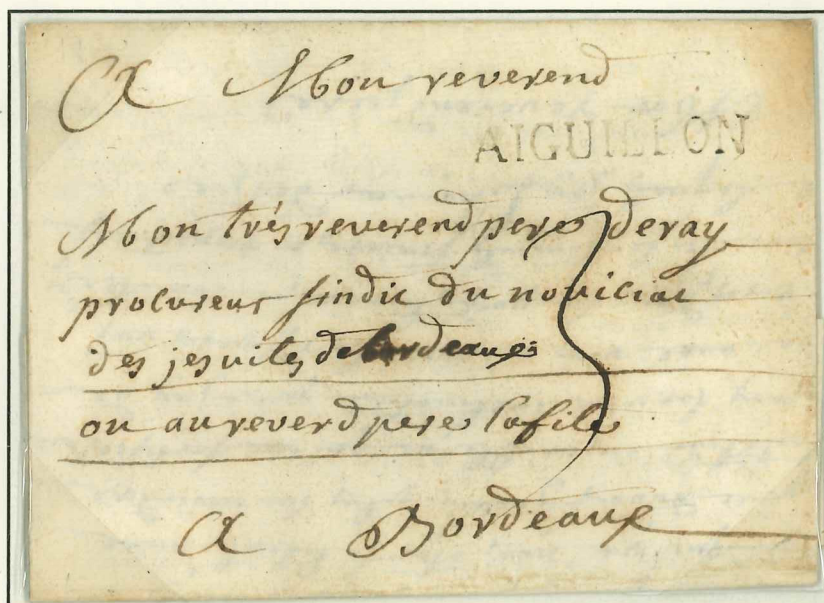 A Mon reverend
AIGUILLON
Mon trés reverend pere deray
procureur sindic du noviciat
des jesuites de bordeaux
ou au reverd pere lafile
A Bordeaux